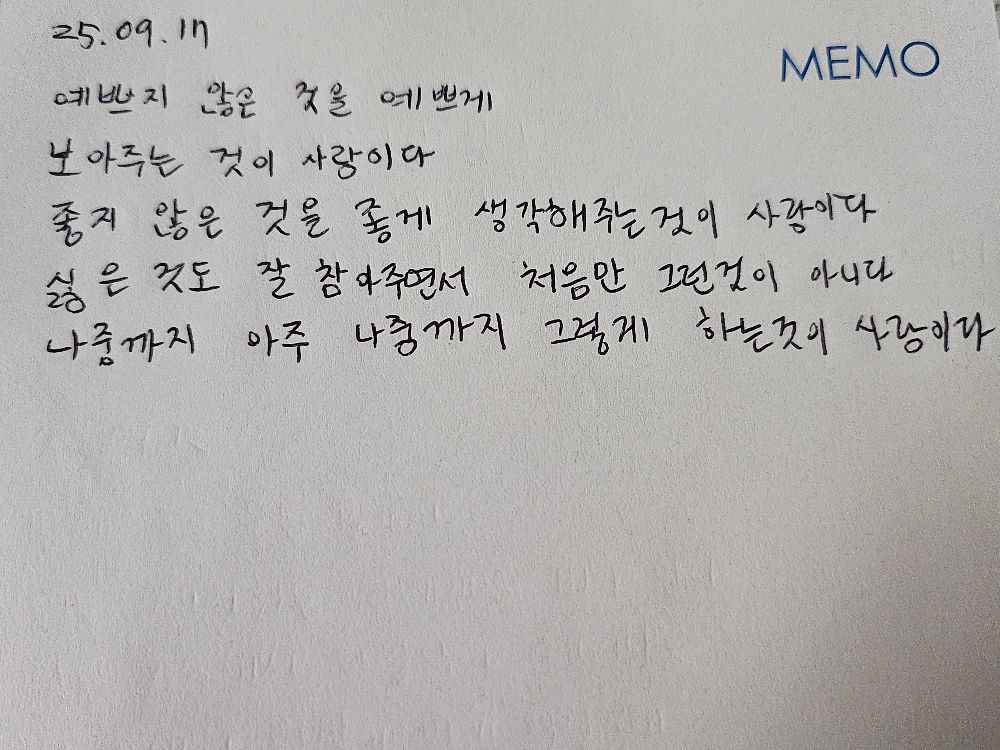 25.09.17
MEMO
예쁘지 않은 것을 예쁘게
보아주는 것이 사랑이다
좋지 않은 것을 좋게 생각해주는것이 사랑이다
싫은 것도 잘 참아주면서 처음만 그런것이 아니다
나중까지 아주 나중까지 그렇게 하는것이 사랑이다